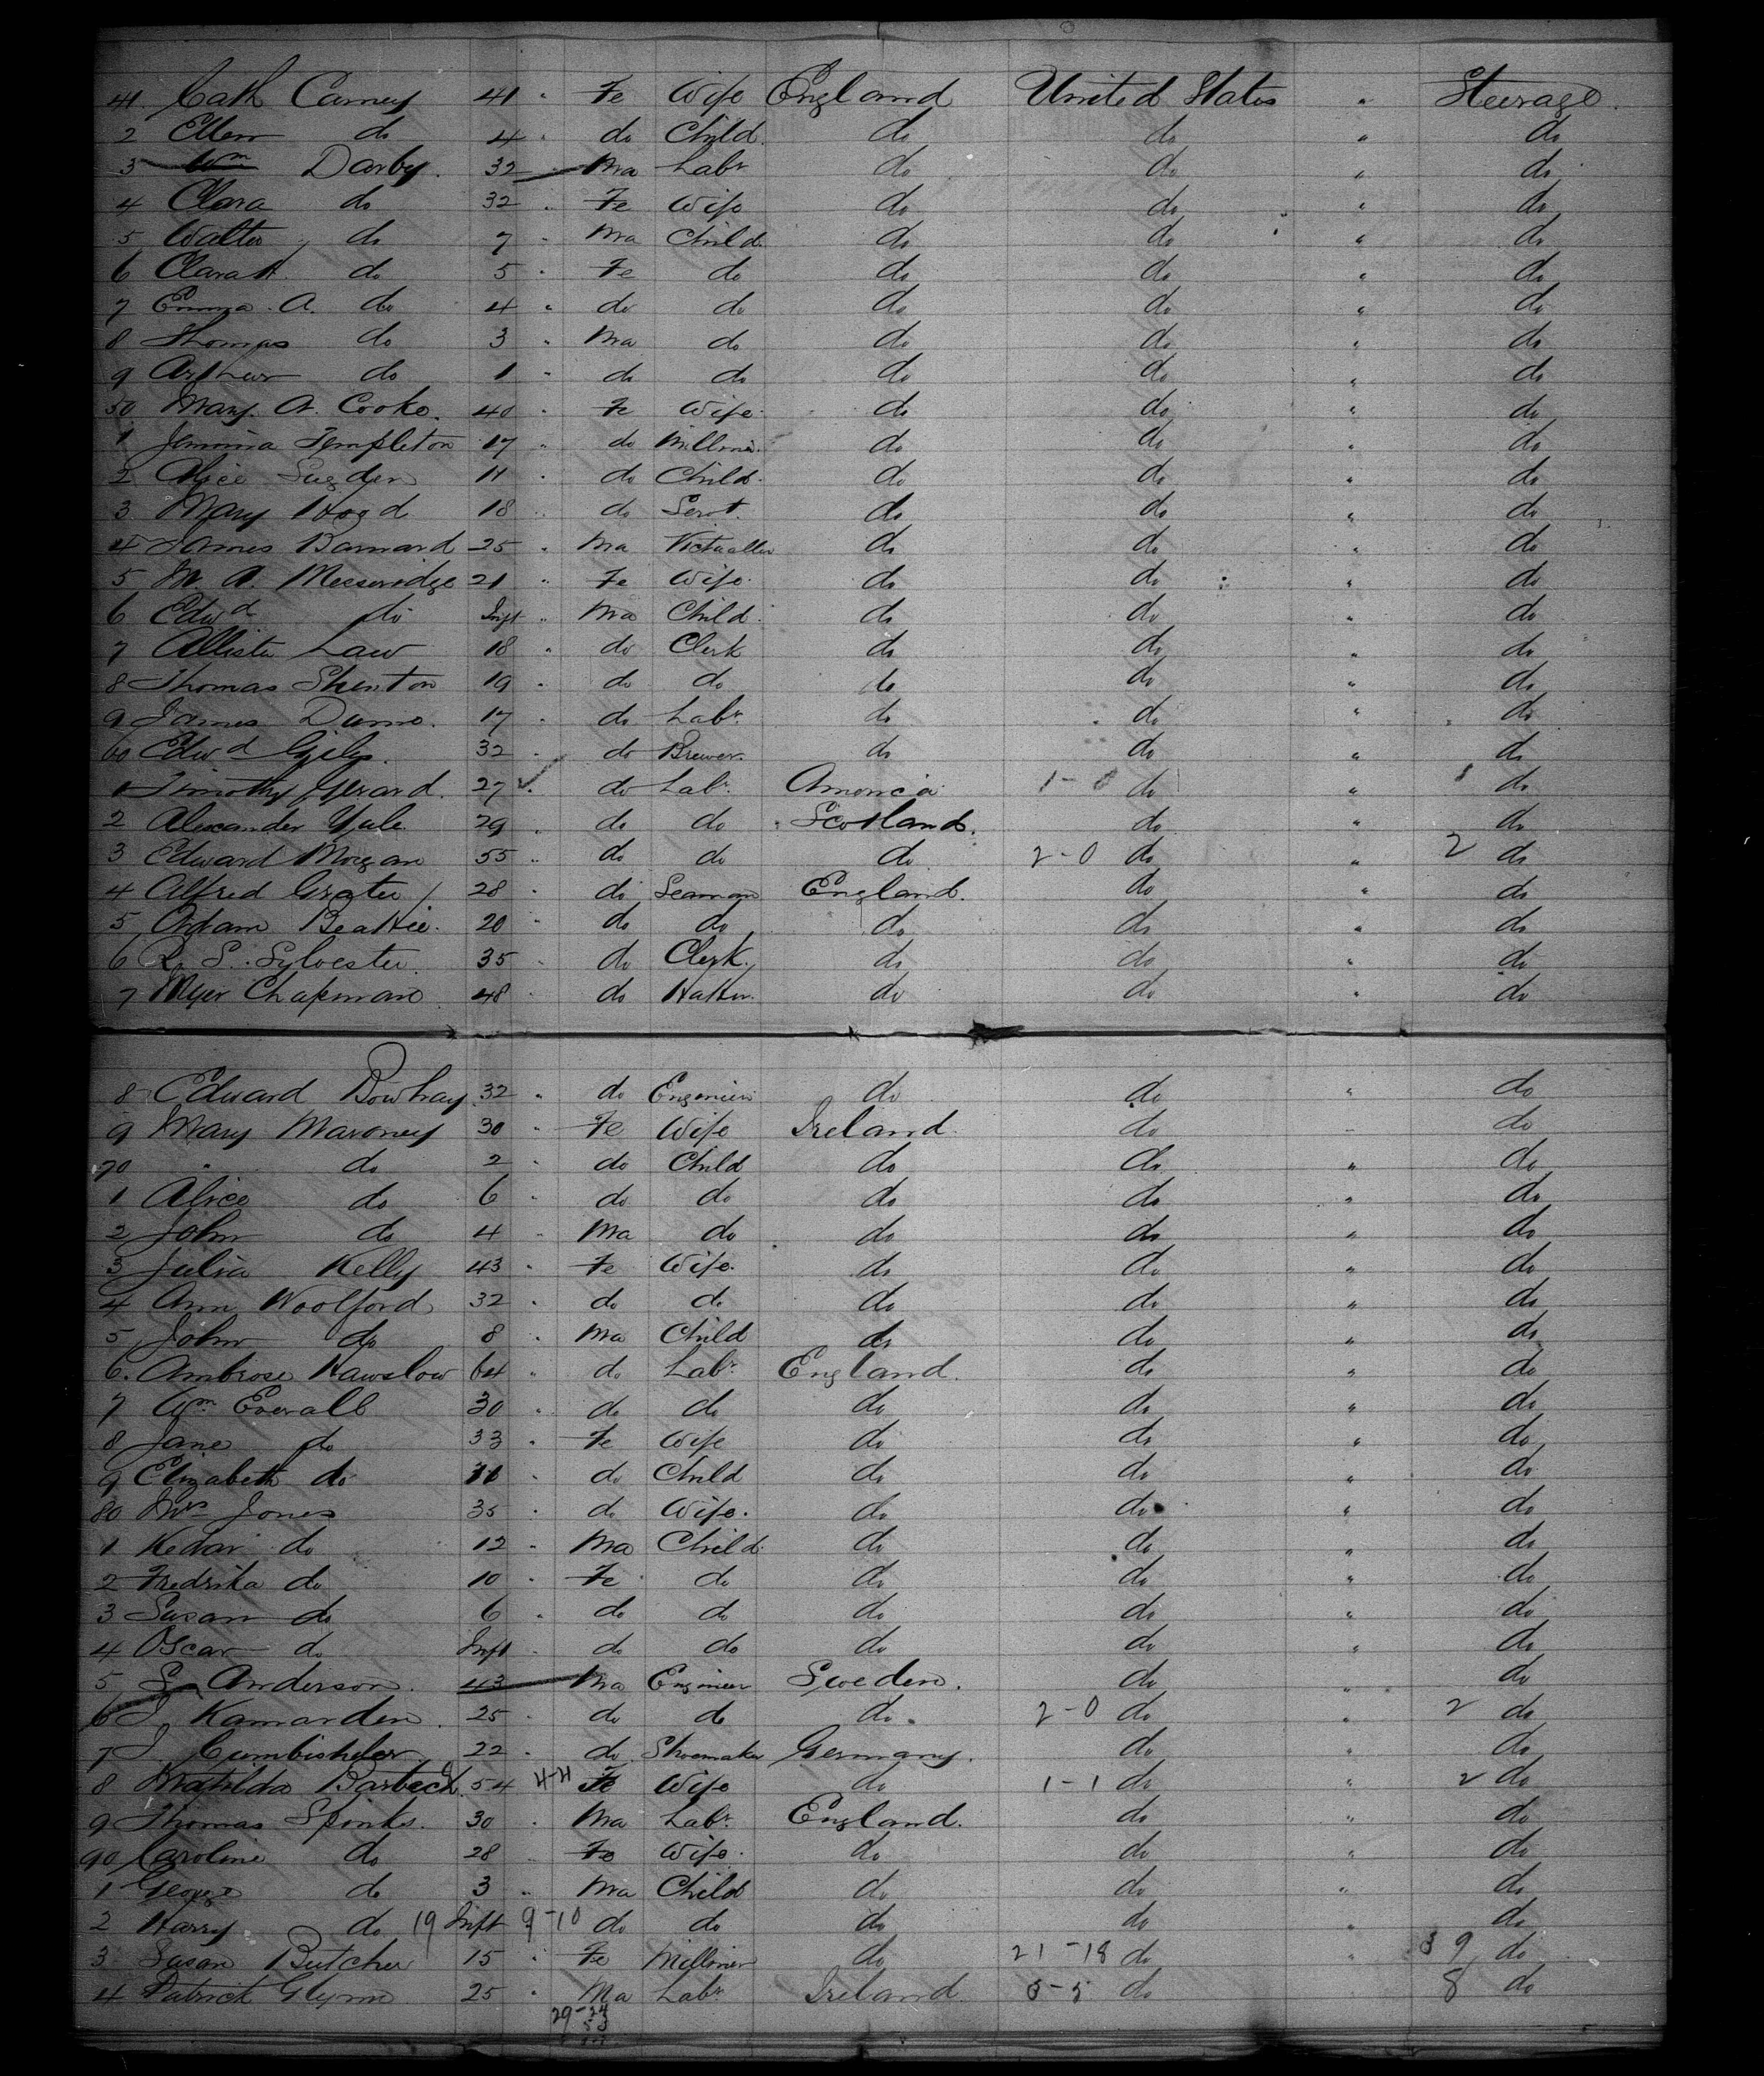 41. Cath Carney 41 " Fe Wife England United States " Steerage.
2 Ellen do 4 " do Child. do do " do
3 Wm Darby. 32 Ma Labr do do " do
4 Clara do 32 " Fe Wife do do " do
5 Walter do 7 " Ma Child. do do " do
6 Clara H. do 5 " Fe do do do " do
7 Emma. A. do 4 " do do do do " do
8 Thomas do 3 " Ma do do do " do
9 Arthur do 1 " do do do do " do
50 Mary. A. Cooke. 40 " Fe Wife. do do " do
1 Jemima Templeton 17 " do Milliner. do do " do
2 Alice Sugden 11 " do Child. do do " do
3 Mary Hogd 18 " do Servt. do do " do
4 James Barnard 25 " Ma Victualler do do " do
5 M. A. 21 " Fe Wife. do do " do
6 Edwd do Inft " Ma Child. do do " do
7 Allister Law 18 " do Clerk do do " do
8 Thomas Shenton 19 " do do do do " do
9 James 17 " do Labr. do do " do
60 Edwd Giles. 32 " do Brewer. do do " do
1 Timothy Gerard. 27 " do Labr. America 1-0 do " 1 do
2 Alexander Yule 29 " do do Scotland. do " do
3 Edward Morgan 55 " do do do 2-0 do " 2 do
4 Alfred Grater 28 " do Seaman England. do " do
5 Adam Beattie. 20 " do do do do " do
6 R. S. Sylvester. 35 " do Clerk. do do " do
7 Myer Chapman 48 " do Hatter. do do " do
8 Edward Bowhay 32 " do Engineer do do " do
9 Mary Maroney 30 " Fe Wife Ireland. do " do
70 " do 2 " do Child do do " do
1 Alice do 6 " do do do do " do
2 John do 4 " Ma do do do " do
3 Julia Kelly 43 " Fe Wife. do do " do
4 Ann Woolford 32 " do do do do " do
5 John do 8 " Ma Child do do " do
6. Ambrose Hawslow 64 " do Labr. England. do " do
7 Wm Everall 30 " do do do do " do
8 Jane do 33 " Fe Wife do do " do
9 Elizabeth do 11 " do Child do do " do
80 Mrs Jones 35 " do Wife. do do " do
1 Kedar do 12 " Ma Child. do do " do
2 Fredrika do 10 " Fe do do do " do
3 Susan do 6 " do do do do " do
4 Oscar do Inft " do do do do " do
5 Anderson. 43 Ma Engineer Sweden. do " do
6 J Kamarden. 25 " do do do 2-0 do " 2 do
7 J. 22 " do Shoemaker Germany. do " do
8 Matilda Barbeck. 54 4-4 Fe Wife do 1-1 do " 2 do
9 Thomas Spinks. 30 " Ma Labr. England. do " do
90 Caroline do 28 " Fe Wife. do do " do
1 George do 3 " Ma Child do do " do
2 Harry do 19 Inft 9-10 do do do do " do
3 Susan Butcher 15 " Fe Milliner do 21-18 do " 39 do
4 Patrick Glynn 25 " Ma Labr. Ireland. 5 do 8 do
29-24
53